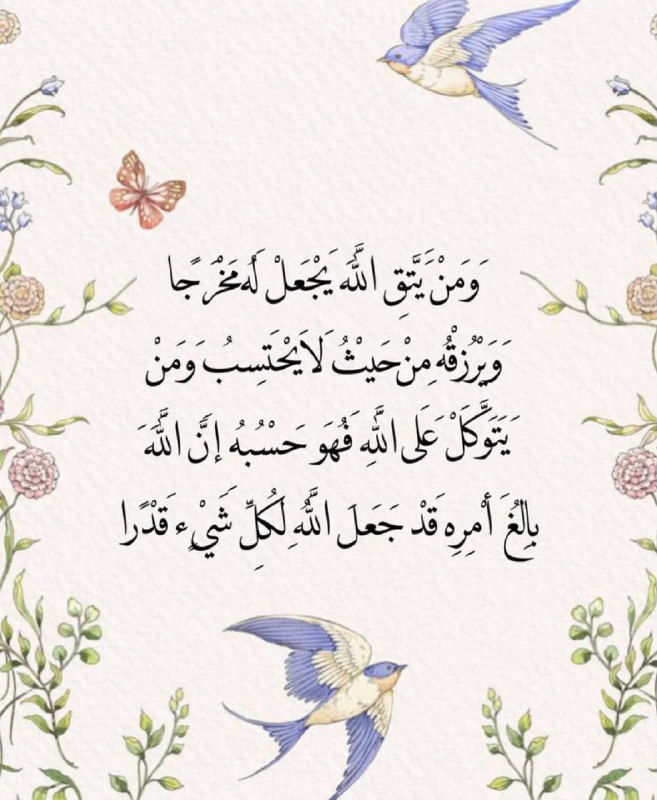 وَمَنْ يَتَّقِ اللَّهَ يَجْعَلْ لَهُ مَخْرَجًا
وَيَرْزُقْهُ مِنْ حَيْثُ لَا يَحْتَسِبُ وَمَنْ
يَتَوَكَّلْ عَلَى اللَّهِ فَهُوَ حَسْبُهُ إِنَّ اللَّهَ
بَالِغُ أَمْرِهِ قَدْ جَعَلَ اللَّهُ لِكُلِّ شَيْءٍ قَدْرًا